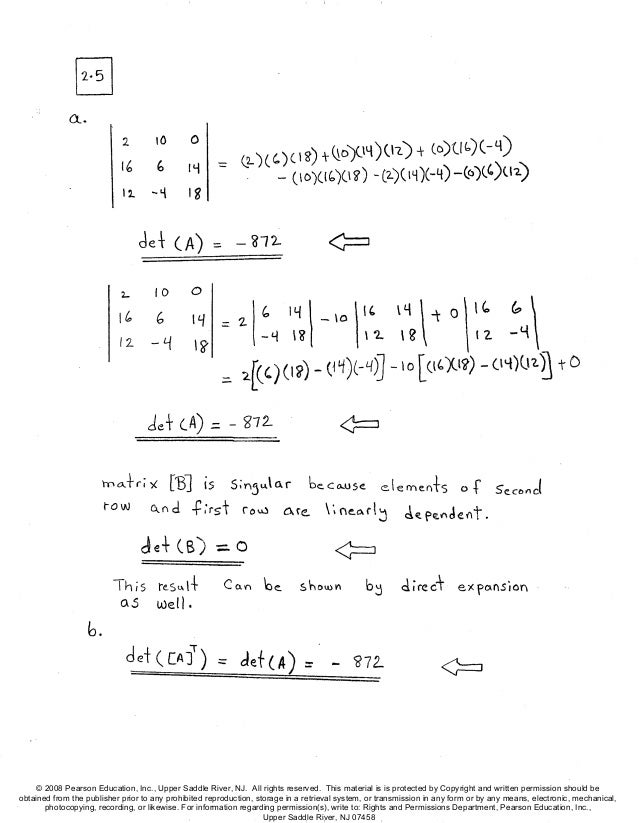 2.5
a.
| 2 10 0 |
| 16 6 14 | = (2)(6)(18) + (10)(14)(12) + (0)(16)(-4)
| 12 -4 18 | - (10)(16)(18) - (2)(14)(-4) - (0)(6)(12)
det (A) = - 872 ⇐
| 2 10 0 |
| 16 6 14 | = 2 | 6 14 | - 10 | 16 14 | + 0 | 16 6 |
| 12 -4 18 | | -4 18 | | 12 18 | | 12 -4 |
= 2[(6)(18) - (14)(-4)] - 10[(16)(18) - (14)(12)] + 0
det (A) = - 872 ⇐
matrix [B] is singular because elements of second
row and first row are linearly dependent.
det (B) = 0 ⇐
This result Can be shown by direct expansion
as well.
b.
det ([A]ᵀ) = det (A) = - 872 ⇐
© 2008 Pearson Education, Inc., Upper Saddle River, NJ. All rights reserved. This material is is protected by Copyright and written permission should be
obtained from the publisher prior to any prohibited reproduction, storage in a retrieval system, or transmission in any form or by any means, electronic, mechanical,
photocopying, recording, or likewise. For information regarding permission(s), write to: Rights and Permissions Department, Pearson Education, Inc.,
Upper Saddle River, NJ 07458